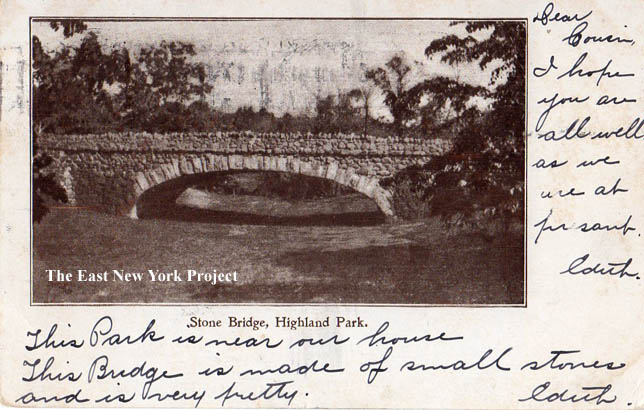 Dear
Cousin,
I hope
you are
all well
as we
are at
presant.
Edith.
The East New York Project
Stone Bridge, Highland Park.
This Park is near our house
This Bridge is made of small stones
and is very pretty. Edith.